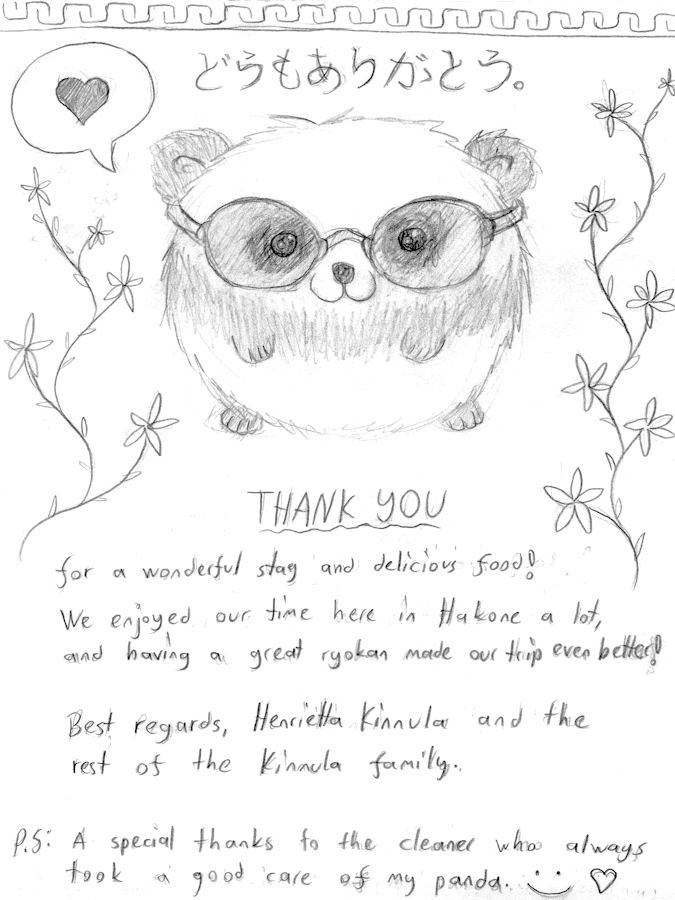 どうもありがとう。
THANK YOU
for a wonderful stay and delicious food!
We enjoyed our time here in Hakone a lot,
and having a great ryokan made our trip even better!
Best regards, Henrietta Kinnula and the
rest of the Kinnula family.
P.S: A special thanks to the cleaner who always
took a good care of my panda.